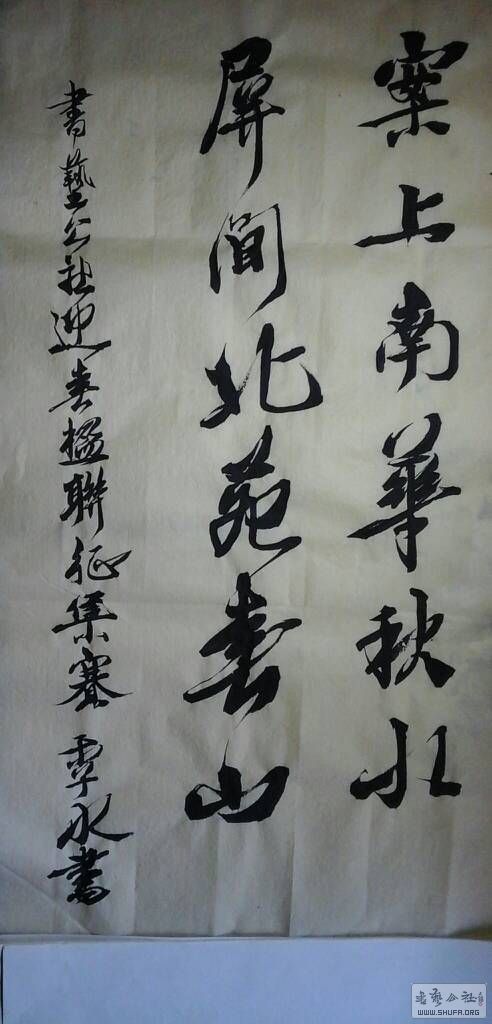 案上南華秋水
屏間北苑春山
書藝公社迎春楹聯征集賽 覃水書
书艺公社
WWW.SHUFA.ORG